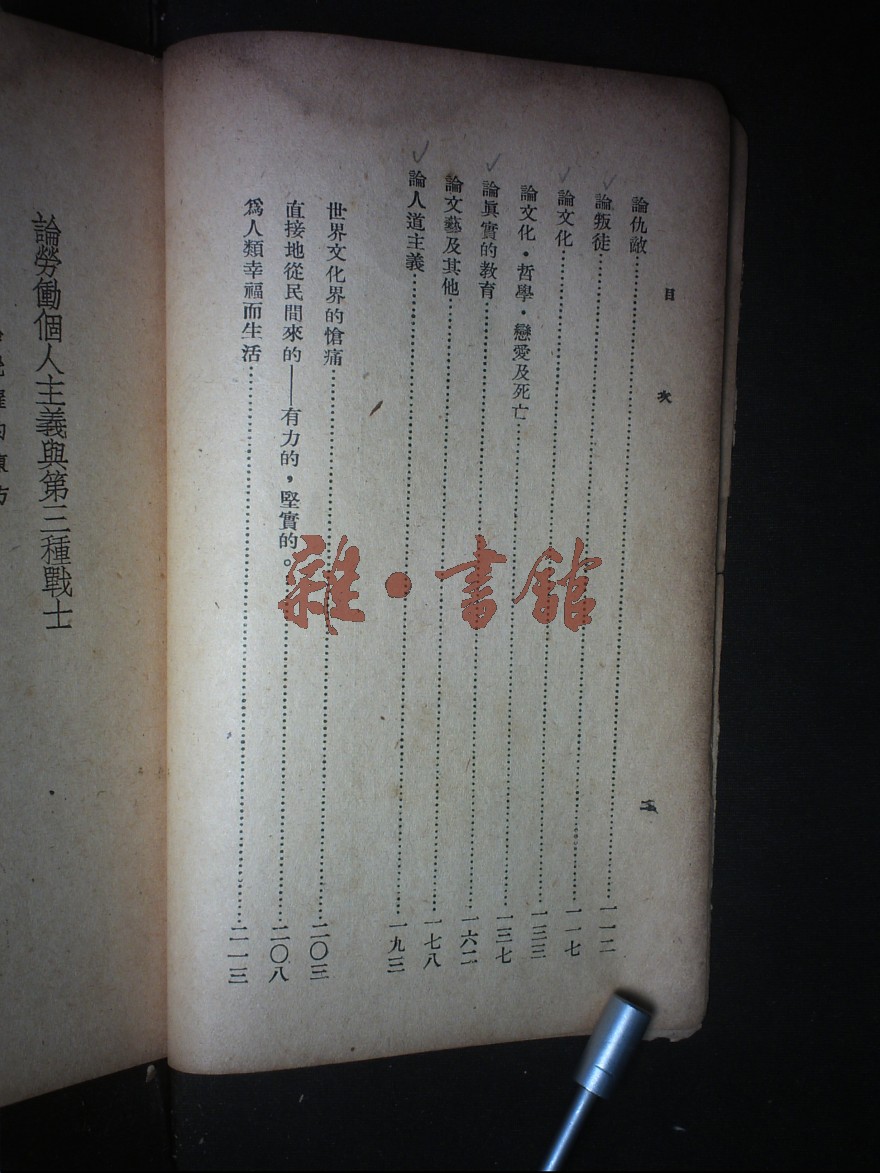 目次
論仇敵……一一二
論叛徒……一一七
論文化……一三三
論文化・哲學・戀愛及死亡……一三七
論眞實的教育……一六二
論文藝及其他……一七八
論人道主義……一九三
世界文化界的愴痛……二〇三
直接地從民間來的——有力的，堅實的。……二〇八
爲人類幸福而生活……二一三
論勞働個人主義與第三種戰士
雜·書館